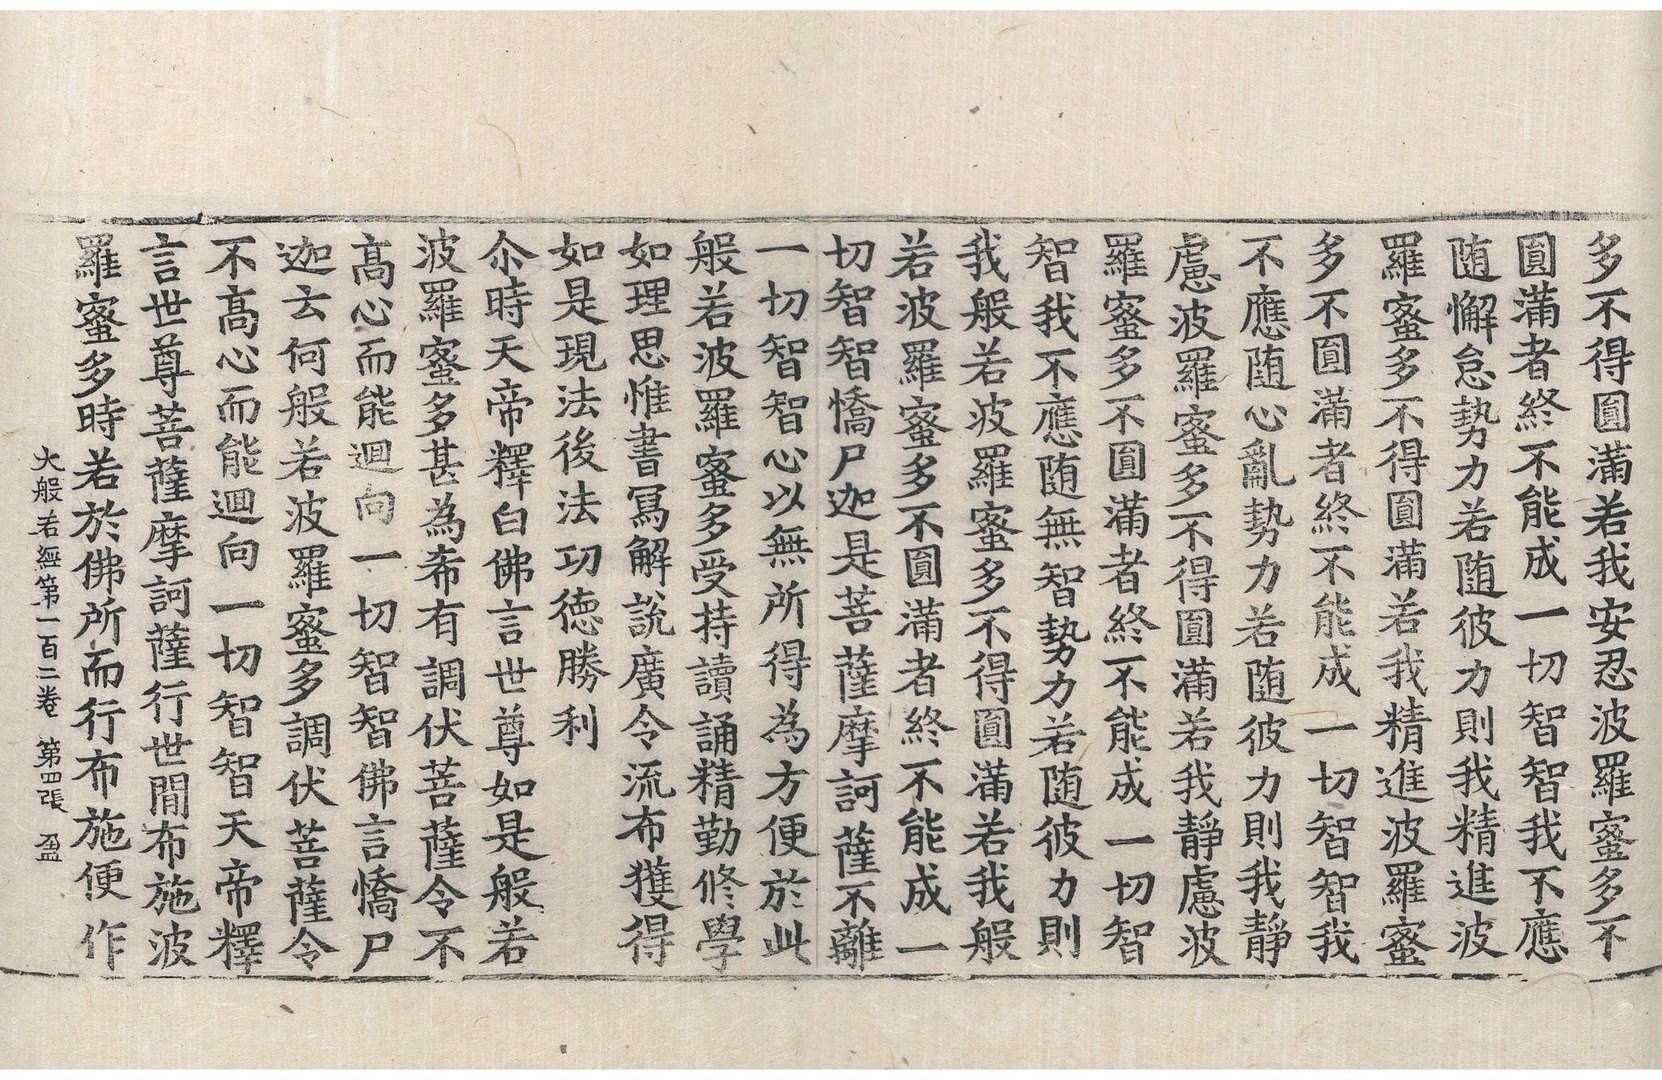 多不得圓滿若我安忍波羅蜜多不
圓滿者終不能成一切智智我不應
随懈怠勢力若随彼力則我精進波
羅蜜多不得圓滿若我精進波羅蜜
多不圓滿者終不能成一切智智我
不應随心亂勢力若随彼力則我靜
慮波羅蜜多不得圓滿若我靜慮波
羅蜜多不圓滿者終不能成一切智
智我不應随無智勢力若随彼力則
我般若波羅蜜多不得圓滿若我般
若波羅蜜多不圓滿者終不能成一
切智智憍尸迦是菩薩摩訶薩不離
一切智智心以無所得為方便於此
般若波羅蜜多受持讀誦精勤修學
如理思惟書寫解說廣令流布獲得
如是現法後法功德勝利
尒時天帝釋白佛言世尊如是般若
波羅蜜多甚為希有調伏菩薩令不
髙心而能迴向一切智智佛言憍尸
迦云何般若波羅蜜多調伏菩薩令
不髙心而能迴向一切智智天帝釋
言世尊菩薩摩訶薩行世間布施波
羅蜜多時若於佛所而行布施便作
大般若經第一百二卷 第四張 盈